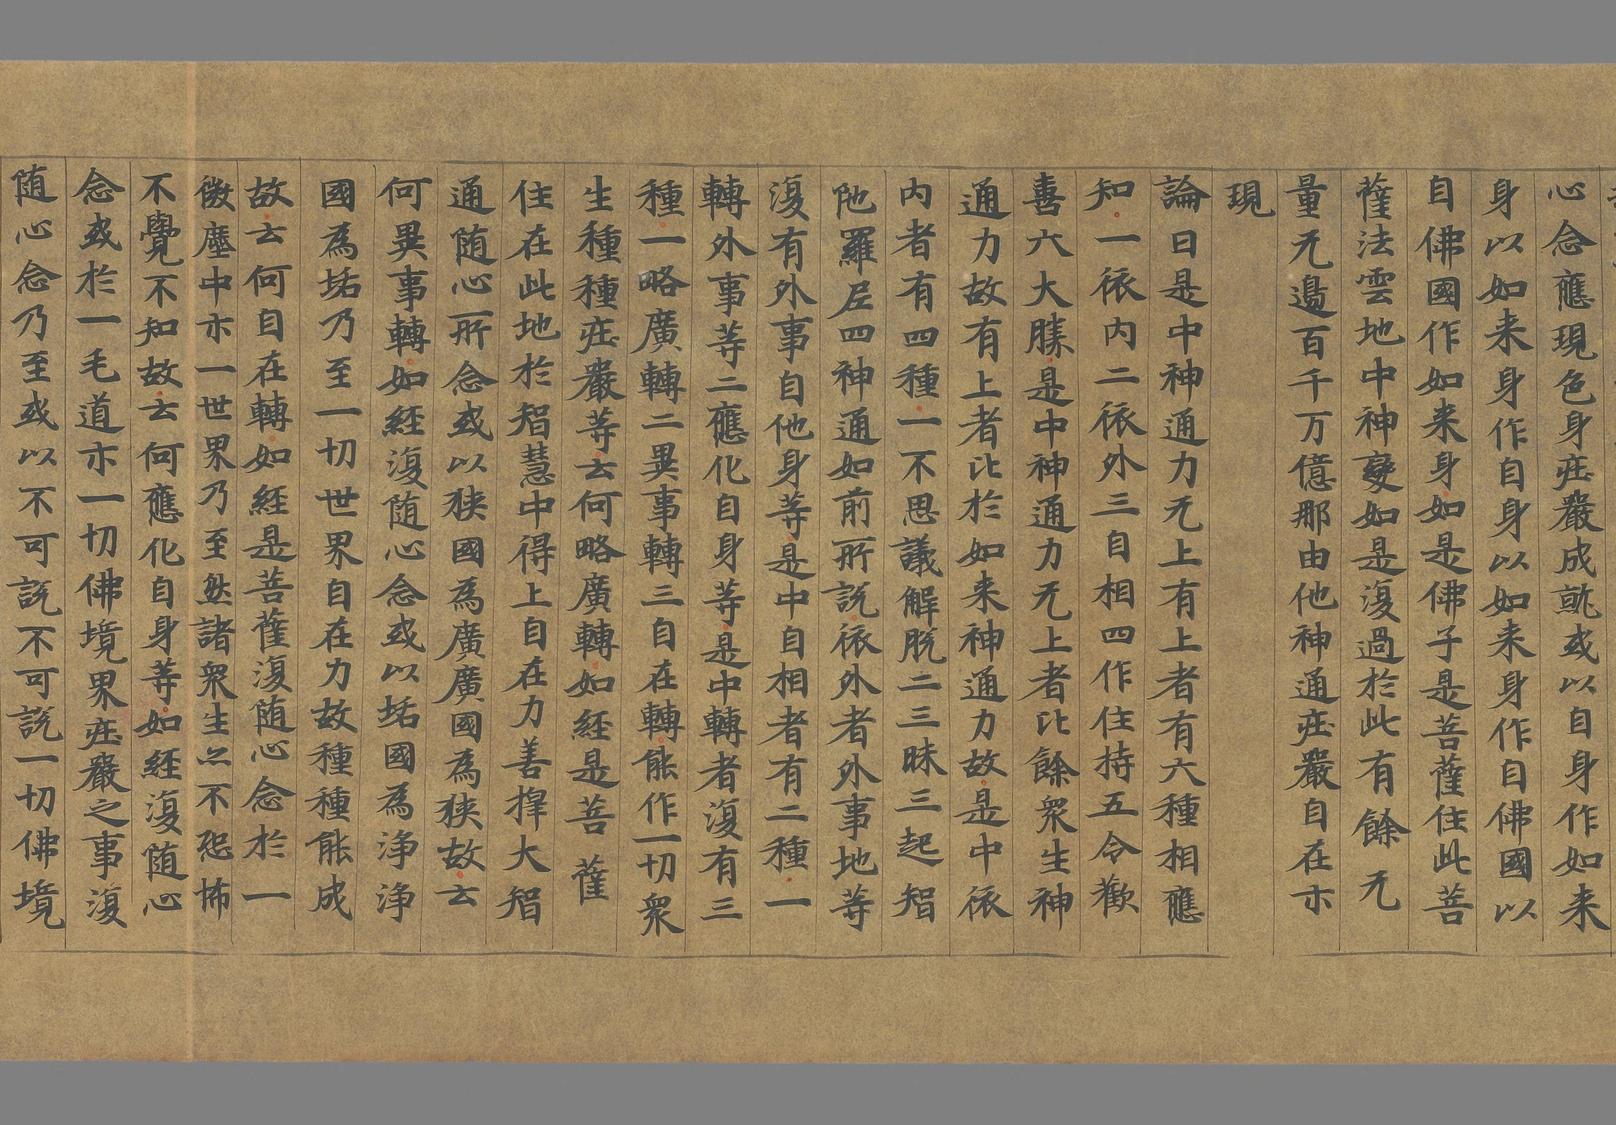 心念應現色身莊嚴成就或以自身作如来
身以如来身作自身以如来身作自佛國以
自佛國作如来身如是佛子是菩薩住此菩
薩法雲地中神變如是復過於此有餘无
量无邊百千万億那由他神通莊嚴自在亦
現
論曰是中神通力无上有上者有六種相應
知一依内二依外三自相四作住持五令歡
喜六大勝是中神通力无上者比餘衆生神
通力故有上者比於如来神通力故是中依
内者有四種一不思議解脫二三昧三起智
陁羅尼四神通如前所說依外者外事地等
復有外事自他身等是中自相者有二種一
轉外事等二應化自身等是中轉者復有三
種一略廣轉二異事轉三自在轉能作一切衆
生種種莊嚴等云何略廣轉如經是菩薩
住在此地於智慧中得上自在力善擇大智
通随心所念或以狹國為廣廣國為狹故云
何異事轉如經復随心念或以垢國為淨淨
國為垢乃至一切世界自在力故種種能成
故云何自在轉如經是菩薩復随心念於一
微塵中示一世界乃至然諸衆生亦不怨怖
不覺不知故云何應化自身等如經復随心
念或於一毛道示一切佛境界莊嚴之事復
随心念乃至或以不可說不可說一切佛境